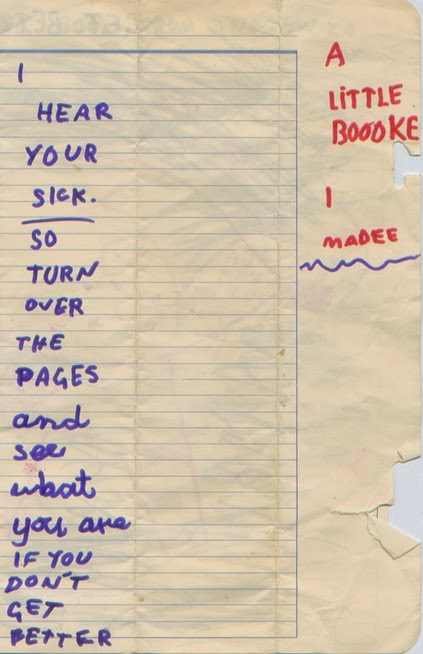 I
HEAR
YOUR
SICK.
SO
TURN
OVER
THE
PAGES
and
see
what
you are
IF YOU
DON'T
GET
BETTER
A
LITTLE
BOOOKE
I
MADEE